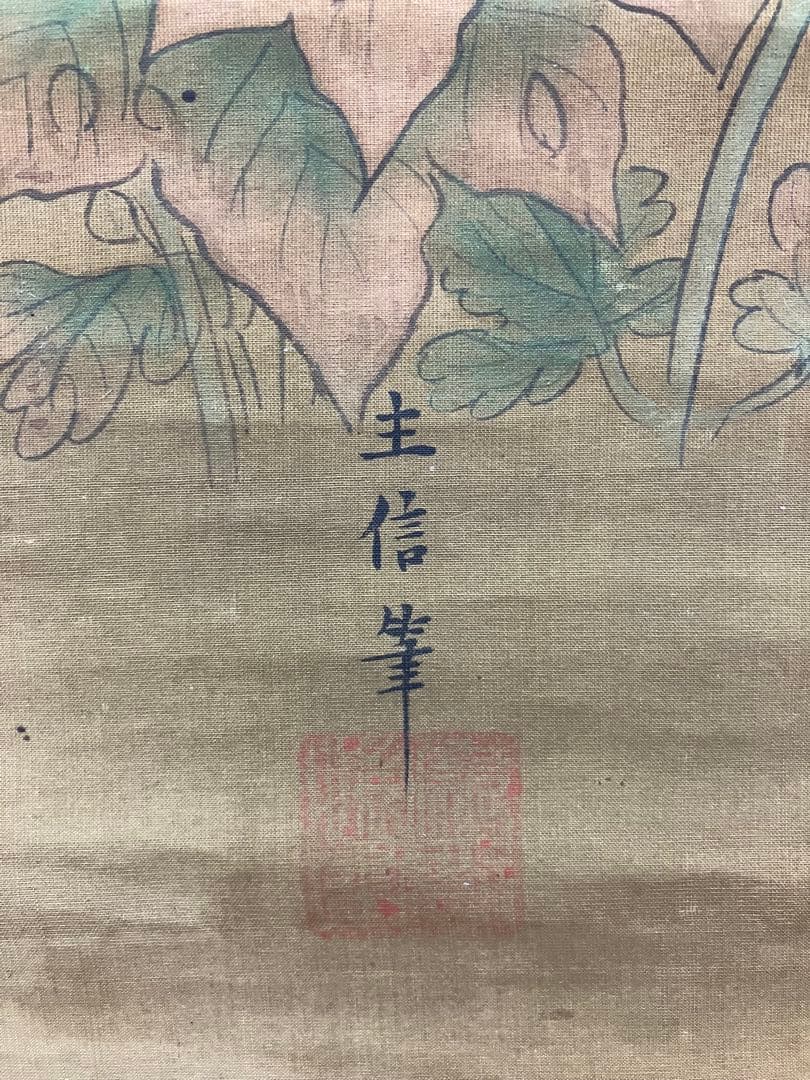 主信筆